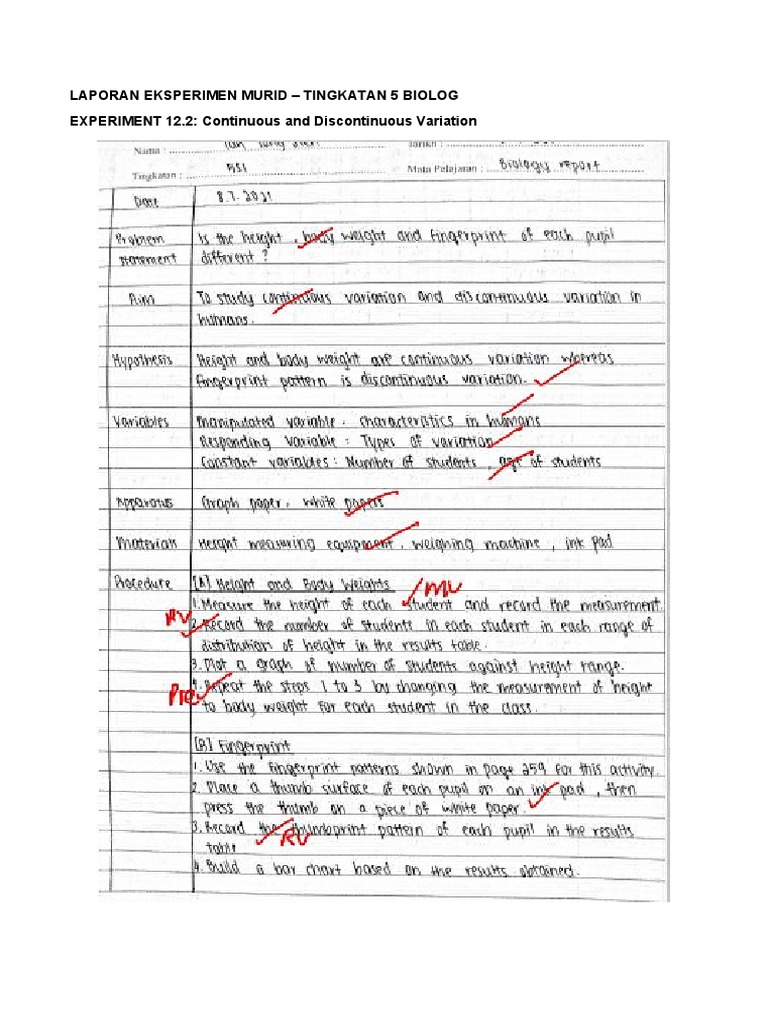 LAPORAN EKSPERIMEN MURID – TINGKATAN 5 BIOLOG
EXPERIMENT 12.2: Continuous and Discontinuous Variation
Nama :
Tarikh :
Tingkatan : 5S1
Mata Pelajaran : Biology report
Date
8.7.2021
Problem statement
Is the height , body weight and fingerprint of each pupil
different ?
Aim
To study continuous variation and discontinuous variation in
humans.
Hypothesis
Height and body weight are continuous variation whereas
fingerprint pattern is discontinuous variation.
Variables
Manipulated variable : characteristics in humans
Responding variable : Types of variation
Constant variables : Number of students , age of students
Apparatus
Graph paper, white papers
Materials
Height measuring equipment, weighing machine , ink pad
Procedure
[A] Height and Body Weights
MV
1. Measure the height of each student and record the measurement.
RV
2. Record the number of students in each student in each range of
distribution of height in the results table.
3. Plot a graph of number of students against height range.
Pre
4. Repeat the steps 1 to 3 by changing the measurement of height
to body weight for each student in the class.
[B] Fingerprint
1. Use the fingerprint patterns shown in page 259 for this activity.
2. Place a thumb surface of each pupil on an ink pad , then
press the thumb on a piece of white paper.
3. Record the thumbprint pattern of each pupil in the results
table
RV
4. Build a bar chart based on the results obtained.